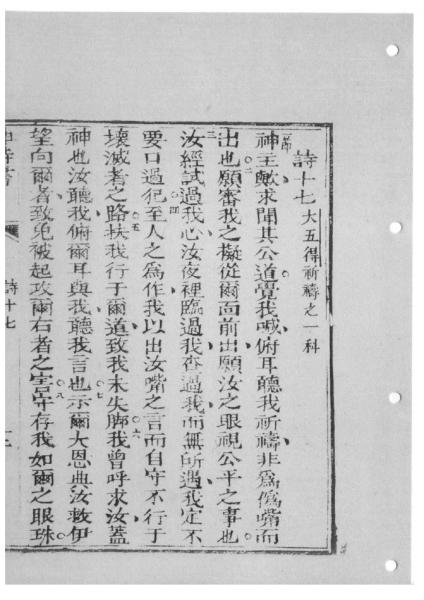 詩十七 大五得祈禱之一科
一節神主歟求聞其公道覺我喊俯耳聽我祈禱非爲僞嘴而
出也。二願審我之擬從爾面前出願汝之眼視公平之事也。
三汝經試過我心汝夜裡臨過我查過我而無所遇我定不
要口過犯。四至人之爲作我以出汝嘴之言而自守不行于
壞滅者之路。五扶我行于爾道致我未失脚。六我曾呼求汝蓋
神也汝聽我俯爾耳與我聽我言也。七示爾大恩典汝救伊
望向爾者致免被起攻爾右者之害。八守存我如爾之眼珠。
詩十七